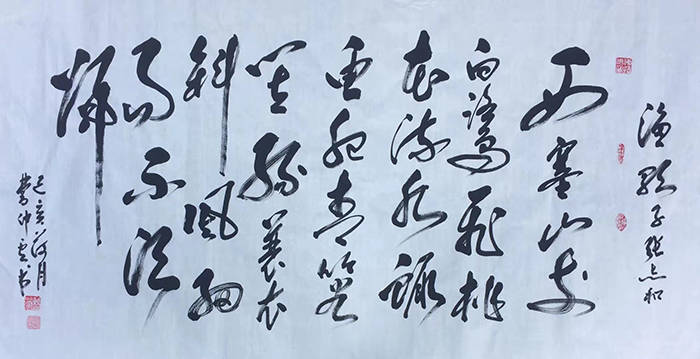 渔歌子张志和
西塞山前
白鹭飞桃
花流水鳜
鱼肥青箬
笠绿蓑衣
斜风细
雨不须
归
己亥荷月
仲书